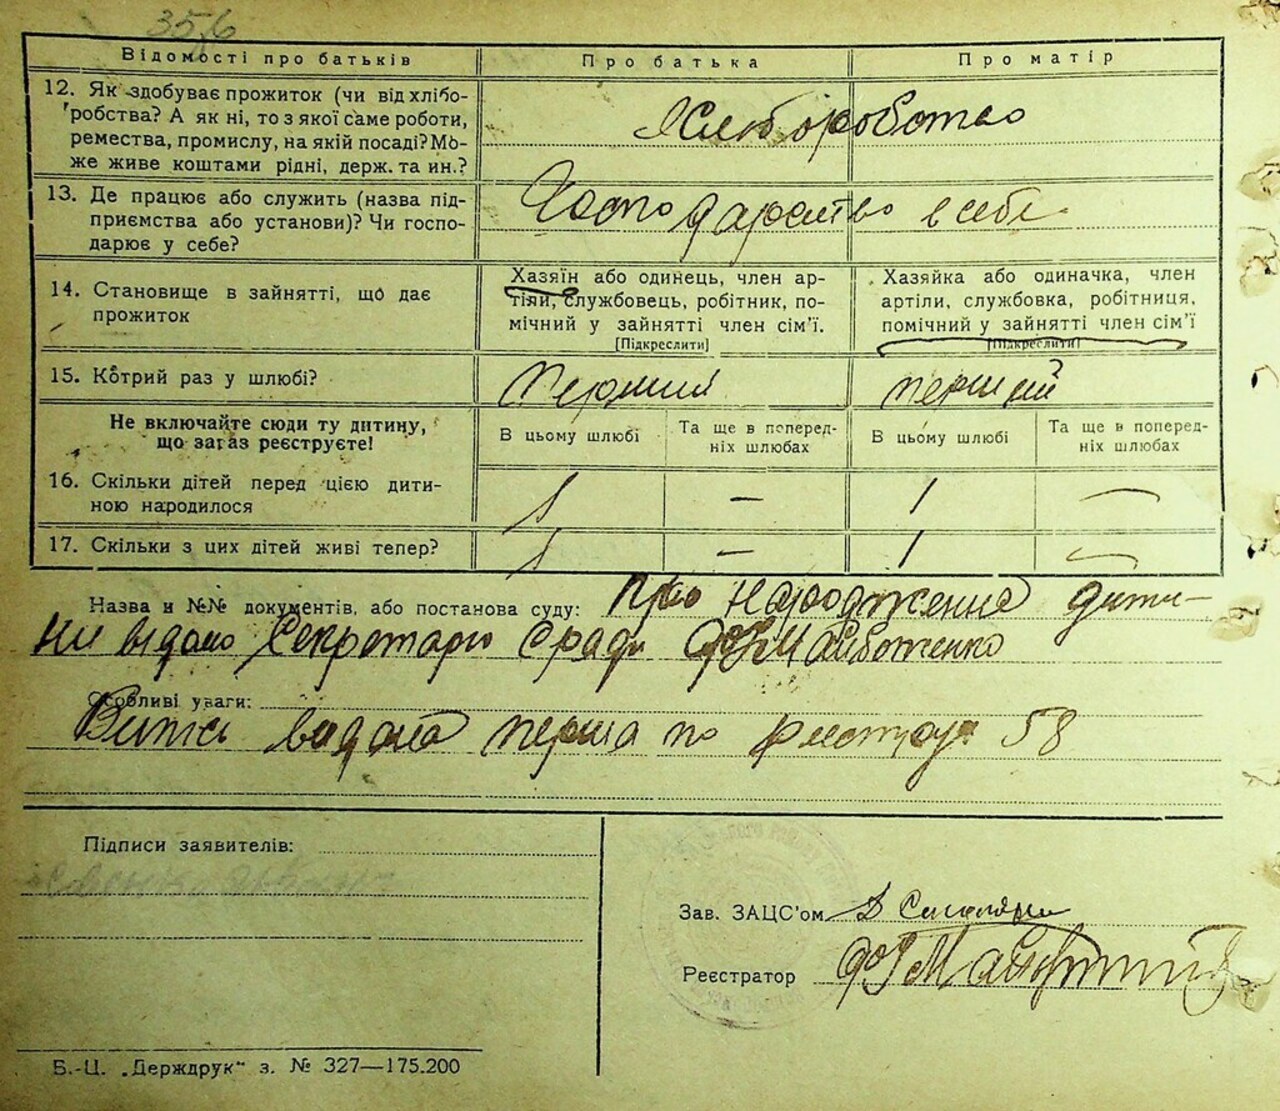 35б
Відомості про батьків
Про батька
Про матір
12. Як здобуває прожиток (чи від хлібо-
робства? А як ні, то з якої саме роботи,
ремества, промислу, на якій посаді? Мо-
же живе коштами рідні, держ. та ин.?
Хлеборобство
13. Де працює або служить (назва під-
приємства або установи)? Чи госпо-
дарює у себе?
Господарство в себе
14. Становище в зайнятті, що дає
прожиток
Хазяїн або одинець, член ар-
тіли, службовець, робітник, по-
мічний у зайнятті член сім'ї.
[Підкреслити]
Хазяйка або одиначка, член
артіли, службовка, робітниця,
помічний у зайнятті член сім'ї
[Підкреслити]
15. Котрий раз у шлюбі?
перший
перший
Не включайте сюди ту дитину,
що зараз реєструєте!
В цьому шлюбі
Та ще в поперед-
ніх шлюбах
В цьому шлюбі
Та ще в поперед-
ніх шлюбах
16. Скільки дітей перед цією дити-
ною народилося
1 — 1 —
17. Скільки з цих дітей живі тепер?
1 — 1 —
Назва и №№ документів, або постанова суду: Про народження дити-
ни відомо Секретарю сради
Особливі уваги:
Витяг видано перша по реєстру 58
Підписи заявителів:
Зав. ЗАЦС'ом
Реєстратор
Б.-Ц. „Держдрук" з. № 327—175.200